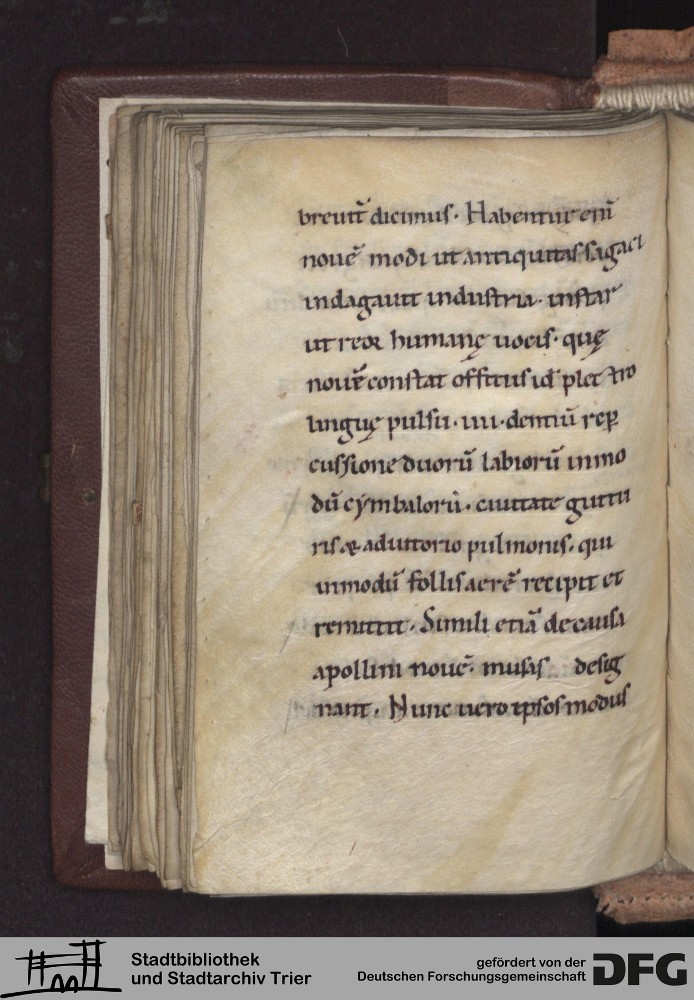 breuit̄ dicimus. Habentur eni̅
noue̅ modi ut antiquitas sagaci
indagauit industria. instar
ut reor humanę uocis. quę
noue̅ constat offitiis id̅ plectro
linguę pulsu. iiii. dentiu̅ rep̱
cussione duoru̅ labioru̅ in mo
du̅ cymbaloru̅. cauitate guttu
ris & adiutorio pulmonis. qui
in modu̅ follis aere̅ recipit et
remittit. Simili etia̅ de causa
apollini noue̅. musas desig
nant. Nunc uero ipsos modus
Stadtbibliothek
und Stadtarchiv Trier
gefördert von der
Deutschen Forschungsgemeinschaft
DFG